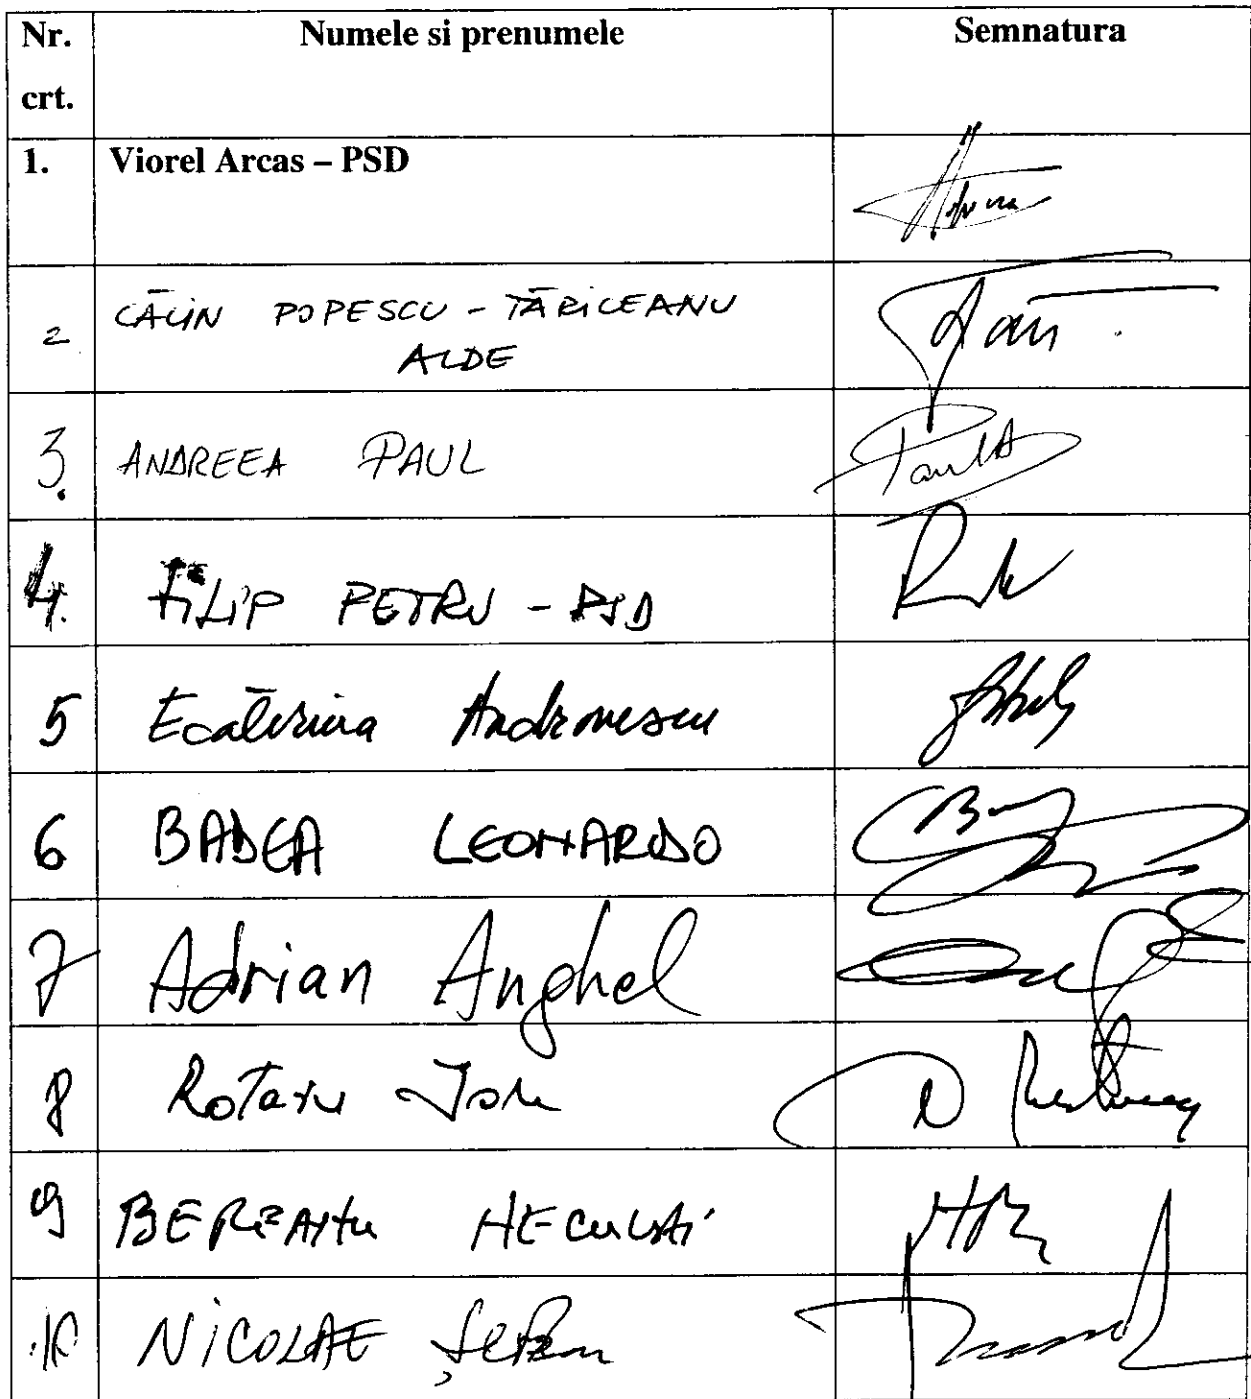 Nr. crt. Numele si prenumele Semnatura
1. Viorel Arcas – PSD
2 CĂLIN POPESCU - TĂRICEANU
ALDE
3. ANDREEA PAUL
4. FILIP PETRU - PSD
5 Ecaterina Andronescu
6 BADEA LEONARDO
7 Adrian Anghel
8 Rotaru Ion
9 BEREANU NECULAI
10 NICOLAE Ștefan